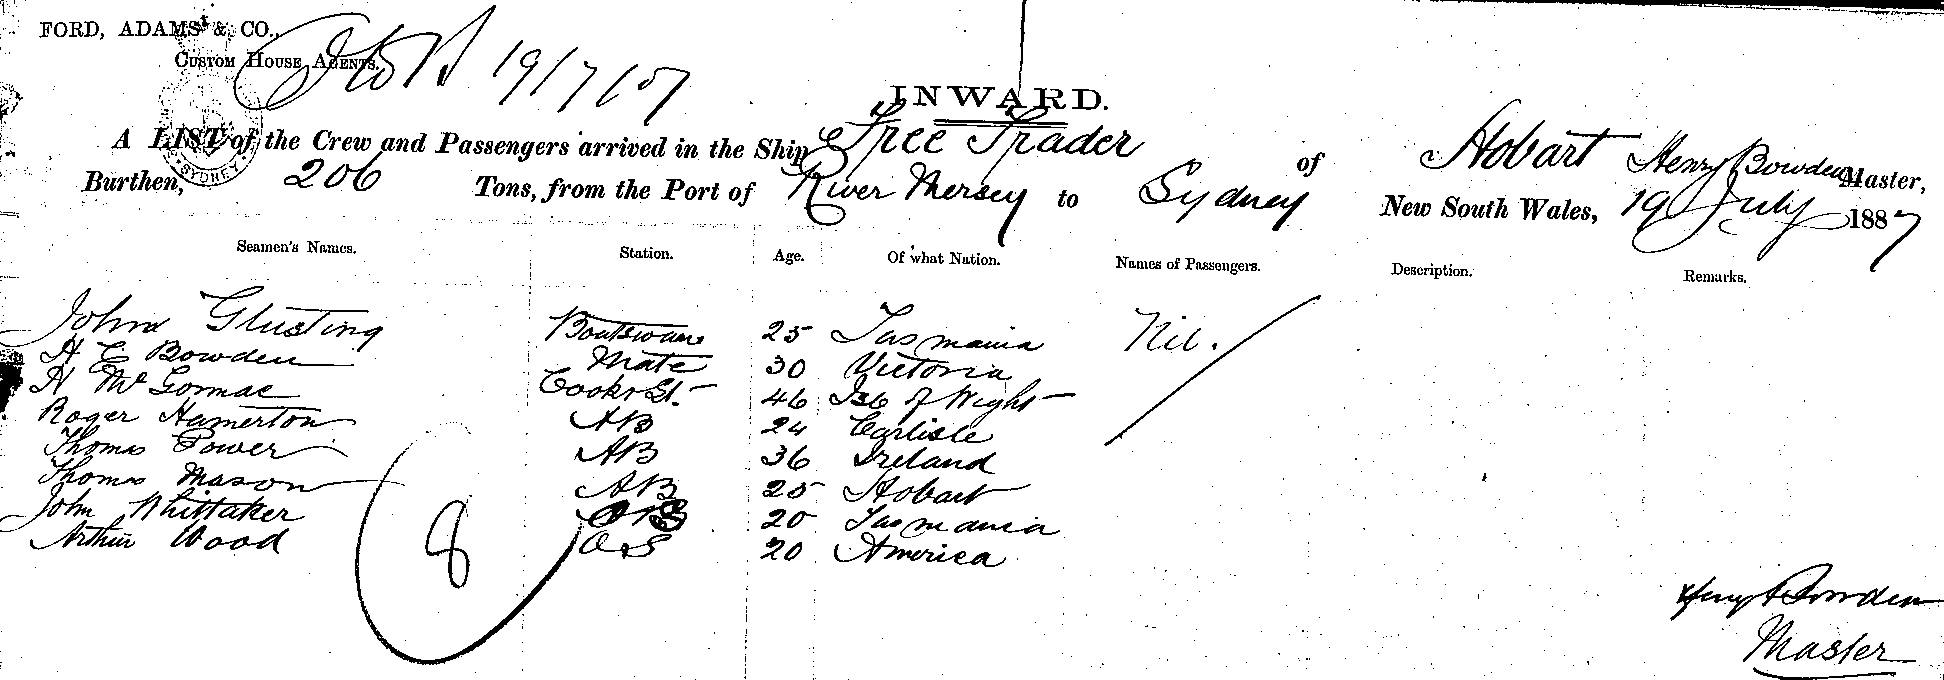 FORD, ADAMS & CO.,
CUSTOM HOUSE AGENTS.
19/7/87
INWARD.
A LIST of the Crew and Passengers arrived in the Ship Free Trader of Hobart Henry Bowden Master,
Burthen, 206 Tons, from the Port of River Mersey to Sydney New South Wales, 19 July 1887
Seamen's Names. Station. Age. Of what Nation. Names of Passengers. Description. Remarks.
John Glusting Boatswain 25 Tasmania Nil.
H E Bowden Mate 30 Victoria
H McGormac Cook & St. 46 Isle of Wight
Roger Hamerton AB 24 Carlisle
Thomas Power AB 36 Ireland
Thomas Mason AB 25 Hobart
John Whittaker OS 20 Tasmania
Arthur Wood OS 20 America
8
Henry Bowden
Master
SYDNEY